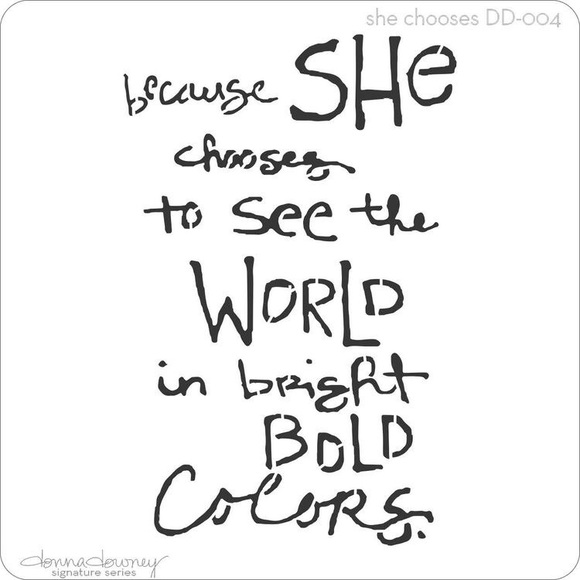 she chooses DD-004
because SHe
chooses
to see the
WORLD
in bright
BOLD
Colors.
donna downey
signature series